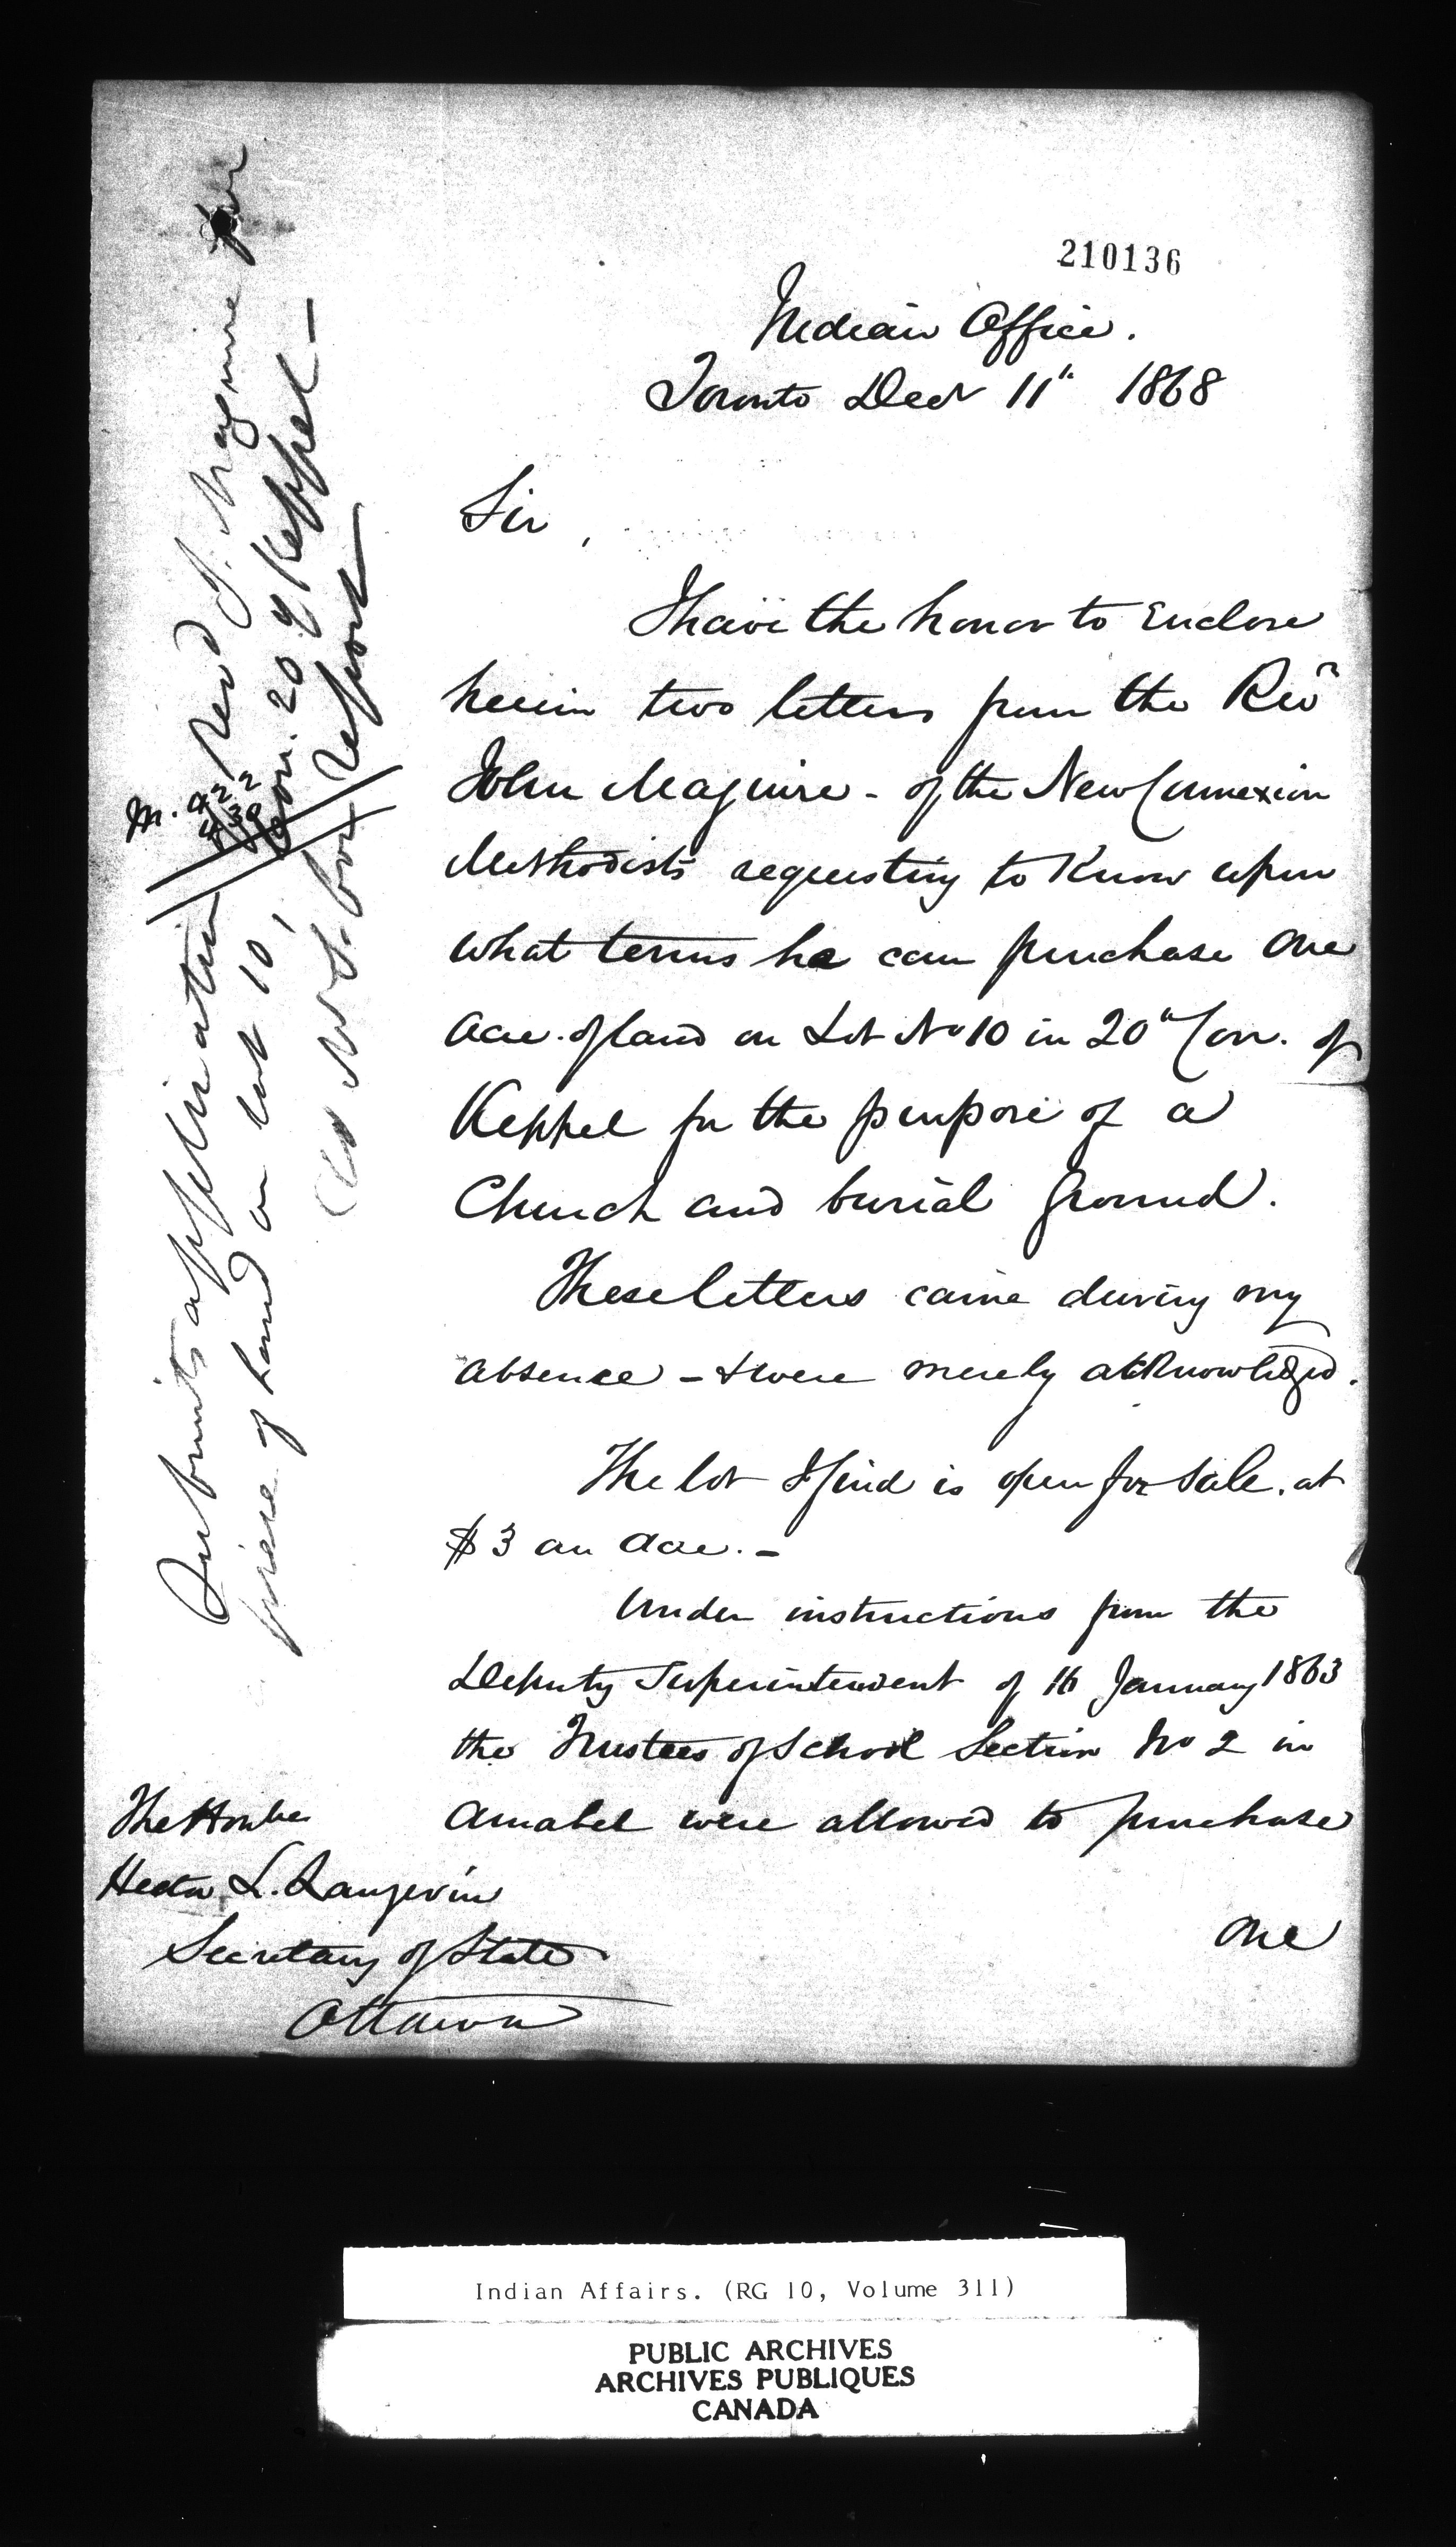 210136
Indian Office.
Toronto Decr 11th 1868
Sir,
I have the honor to enclose
herein two letters from the Revd
John Maguire - of the New Connexion
Methodists requesting to Know upon
what terms he can purchase one
acre of land on Lot No 10 in 20th Con. of
Keppel for the purpose of a
Church and burial ground.
These letters came during my
absence - & were merely acknowledged.
The lot I find is open for sale. at
$3 an acre. -
Under instructions from the
Deputy Superintendent of 16 January 1863
the Trustees of School Section No 2 in
Amabel were allowed to purchase
one
The Honble
Hector L. Langevin
Secretary of State
Ottawa
Submits application Revd J. Maguire for
piece of Land on lot 10, Con. 20 of Keppel -
W S. for report
M. 422
430
Indian Affairs. (RG 10, Volume 311)
PUBLIC ARCHIVES
ARCHIVES PUBLIQUES
CANADA